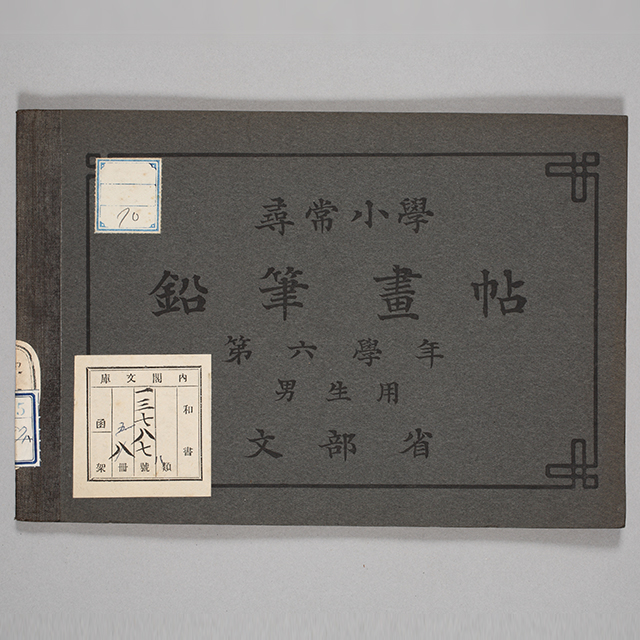 尋常小學
鉛筆畫帖
第六學年
男生用
文部省
70
內閣文庫
和書
一三七八七
八
五
函
架
冊
號
類